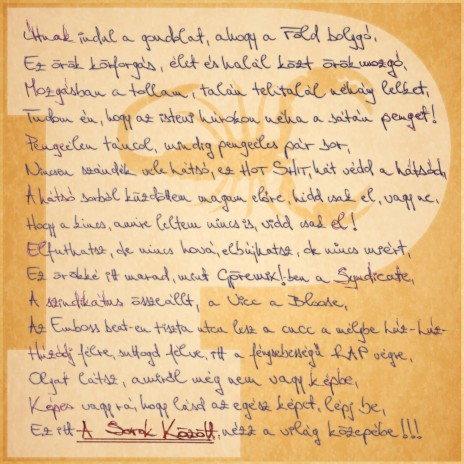 Útnak indul a gondolat, ahogy a Föld bolygó,
Ez örök körforgás, élet és halál közt örökmozgó,
Mozgásban a tollam, talán telitalál néhány lelket,
Tudom én, hogy az isteni húrokon néha a sátán penget!
Pengeélen táncol, mindig pengeéles pár sor,
Nincsen szándék vele hátsó, ez HOT SHIT, hát védd a hátsód,
A hátsó sorból küzdöttem magam előre, hidd csak el, vagy ne,
Hogy a kincs, amire leltem nincs is, vidd csak el!
Elfuthatsz, de nincs hová, elbújhatsz, de nincs miért,
Ez örökké itt marad, mint Göremik!-ben a Syndicate,
A szindikátus összeállt, a Vicc a Bloose,
Az Emboss beat-en tiszta utca lesz a cucc a mélybe húz-húz
Húzódj félre, suttogd félve, itt a fénysebességű RAP végre,
Olyat látsz, amiről még nem vagy képbe,
Képes vagy rá, hogy lásd az egész képet, lépj be,
Ez itt A Sorok Között, nézz a világ közepébe!!!